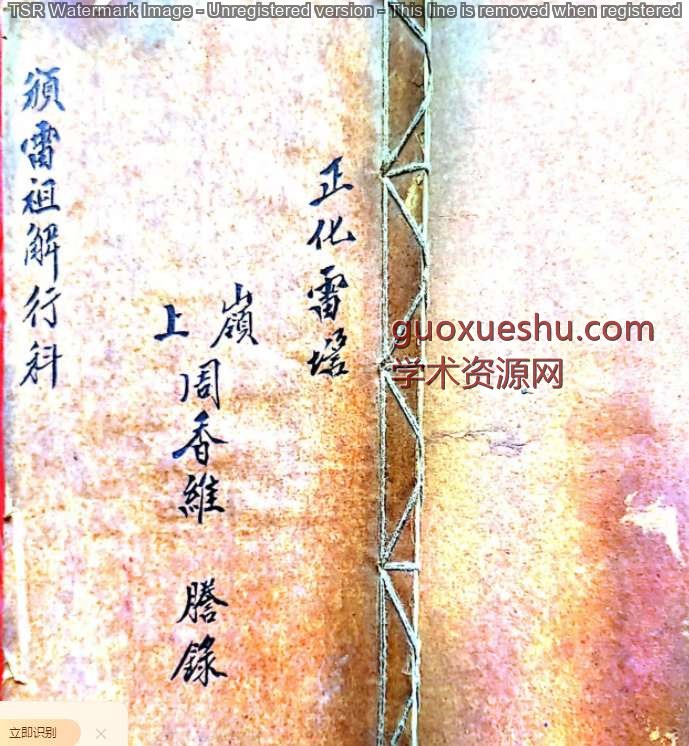 TSR Watermark Image - Unregistered version - This line is removed when registered
正化雷壇
嶺上
周香維 謄錄
頒雷祖解行科
guoxueshu.com
学术资源网
立即识别